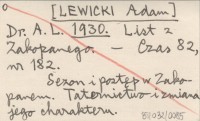 [LEWICKI Adam]
Dr. A. L. 1930. List z
Zakopanego. — Czas 82,
nr 182.
Sezon i postęp w Zako-
panem. Taternictwo i zmiana
jego charakteru.